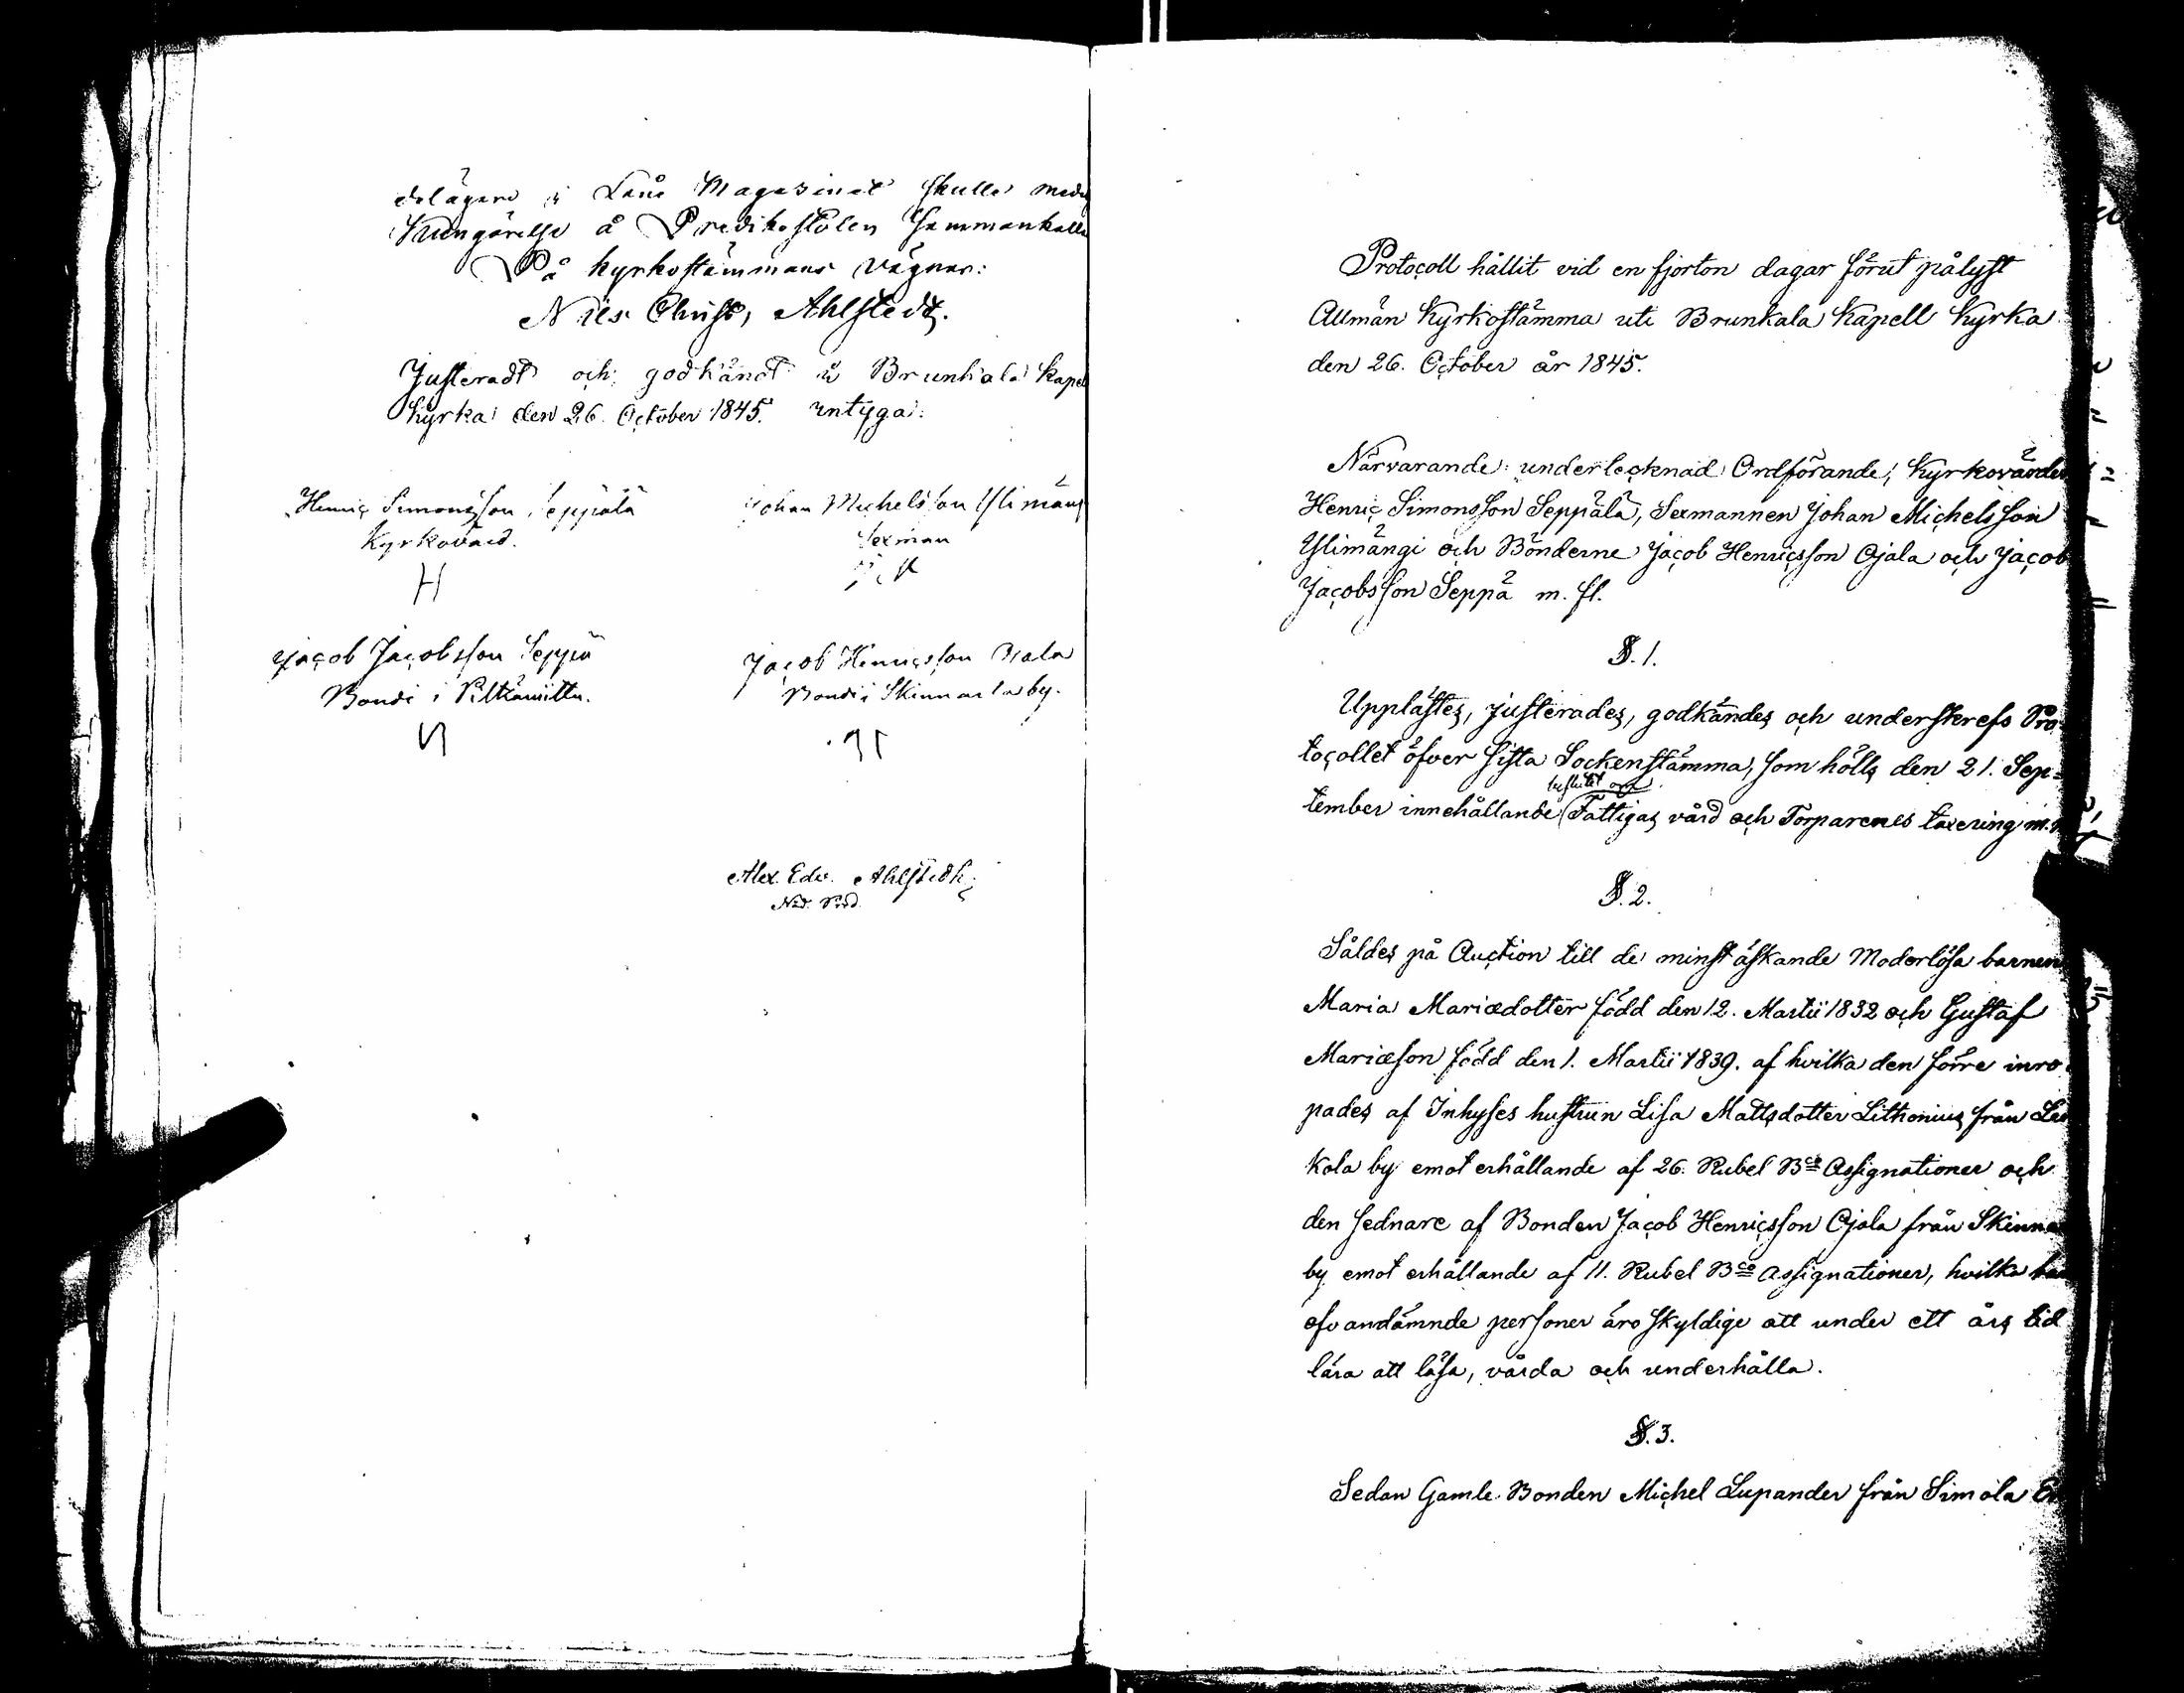 delägare i Låne Magasinet skulle med
Kungörelse å Predikostolen Sammankalla
På kyrkostämmans vägnar:
Nils Christ, Ahlstedt.
Justeradt och godkändt i Brunkala kapel
kyrka den 26. October 1845. intyga:
Henric Simonsson Seppälä
Johan Michelsson Ylimängi
Kyrkovärd.
Sexman
Jacob Jacobsson Seppä
Jacob Henricsson Ojala
Bonde i
Bonde i Skinnarla by.
Alex. Edv. Ahlstedt.
Protocoll hållit vid en fjorton dagar förut pålyst
Allmän Kyrkostämma uti Brunkala Kapell Kyrka
den 26. October år 1845.
Närvarande: undertecknad Ordförande, Kyrkovärden
Henric Simonsson Seppälä, Sexmannen Johan Michelsson
Ylimängi och Bönderne Jacob Henricsson Ojala och Jacob
Jacobsson Seppä m. fl.
§. 1.
Upplästes, justerades, godkändes och underskrefs Pro
tocollet öfver sista Sockenstämma, som hölls den 21. Sep=
beslutet om
tember innehållande Fattigas vård och Torparenes taxering m.
§. 2.
Såldes på Auction till de minst äskande Moderlösa barnen
Maria Mariædotter född den 12. Martii 1832 och Gustaf
Mariæson född den 1. Martii 1839. af hvilka den förre inro
pades af Inhyses hustrun Lisa Mattsdotter Lithonius från
kola by emot erhållande af 26. Rubel Bco Assignationer och
den sednare af Bonden Jacob Henricsson Ojala från Skinna
by emot erhållande af 11. Rubel Bco Assignationer, hvilka
ofvandämnde personer äro skyldige att under ett års tid
lära att läsa, vårda och underhålla.
§. 3.
Sedan Gamle Bonden Michel Lupander från Simola